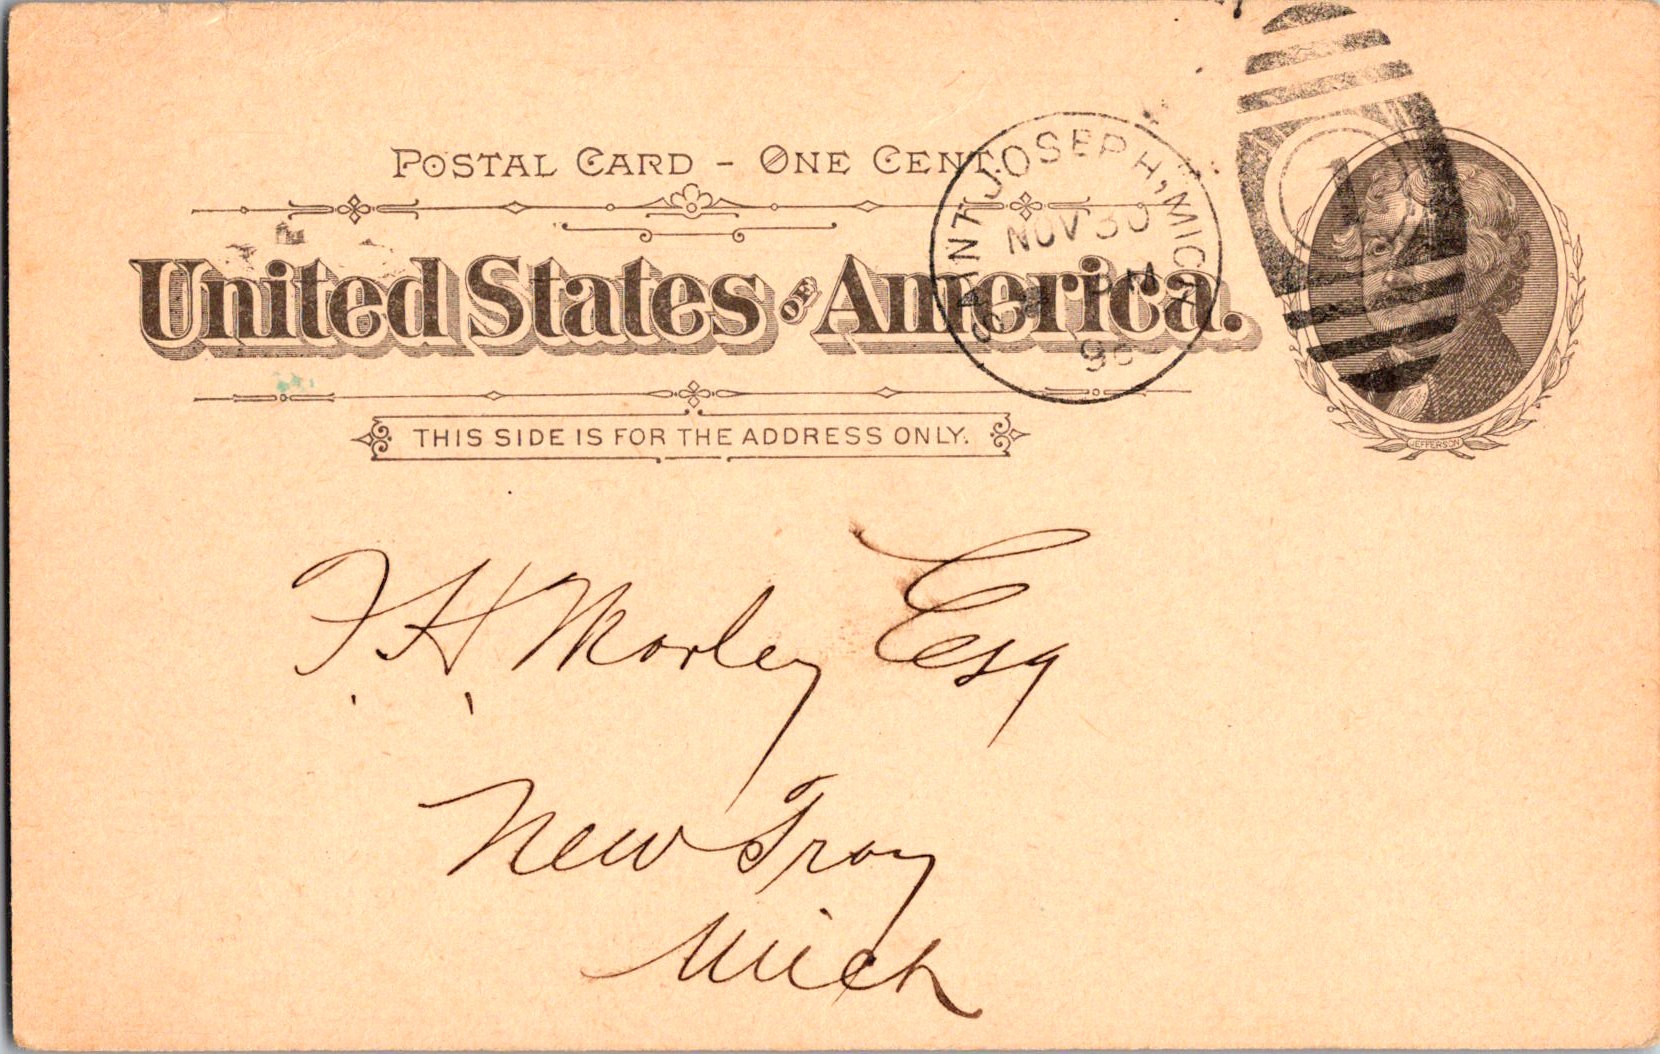 POSTAL CARD - ONE CENT.
United States OF America.
SAINT JOSEPH, MICH.
NOV 30
PM
JEFFERSON
THIS SIDE IS FOR THE ADDRESS ONLY.
F. H. Morley Esq
New Troy
Mich